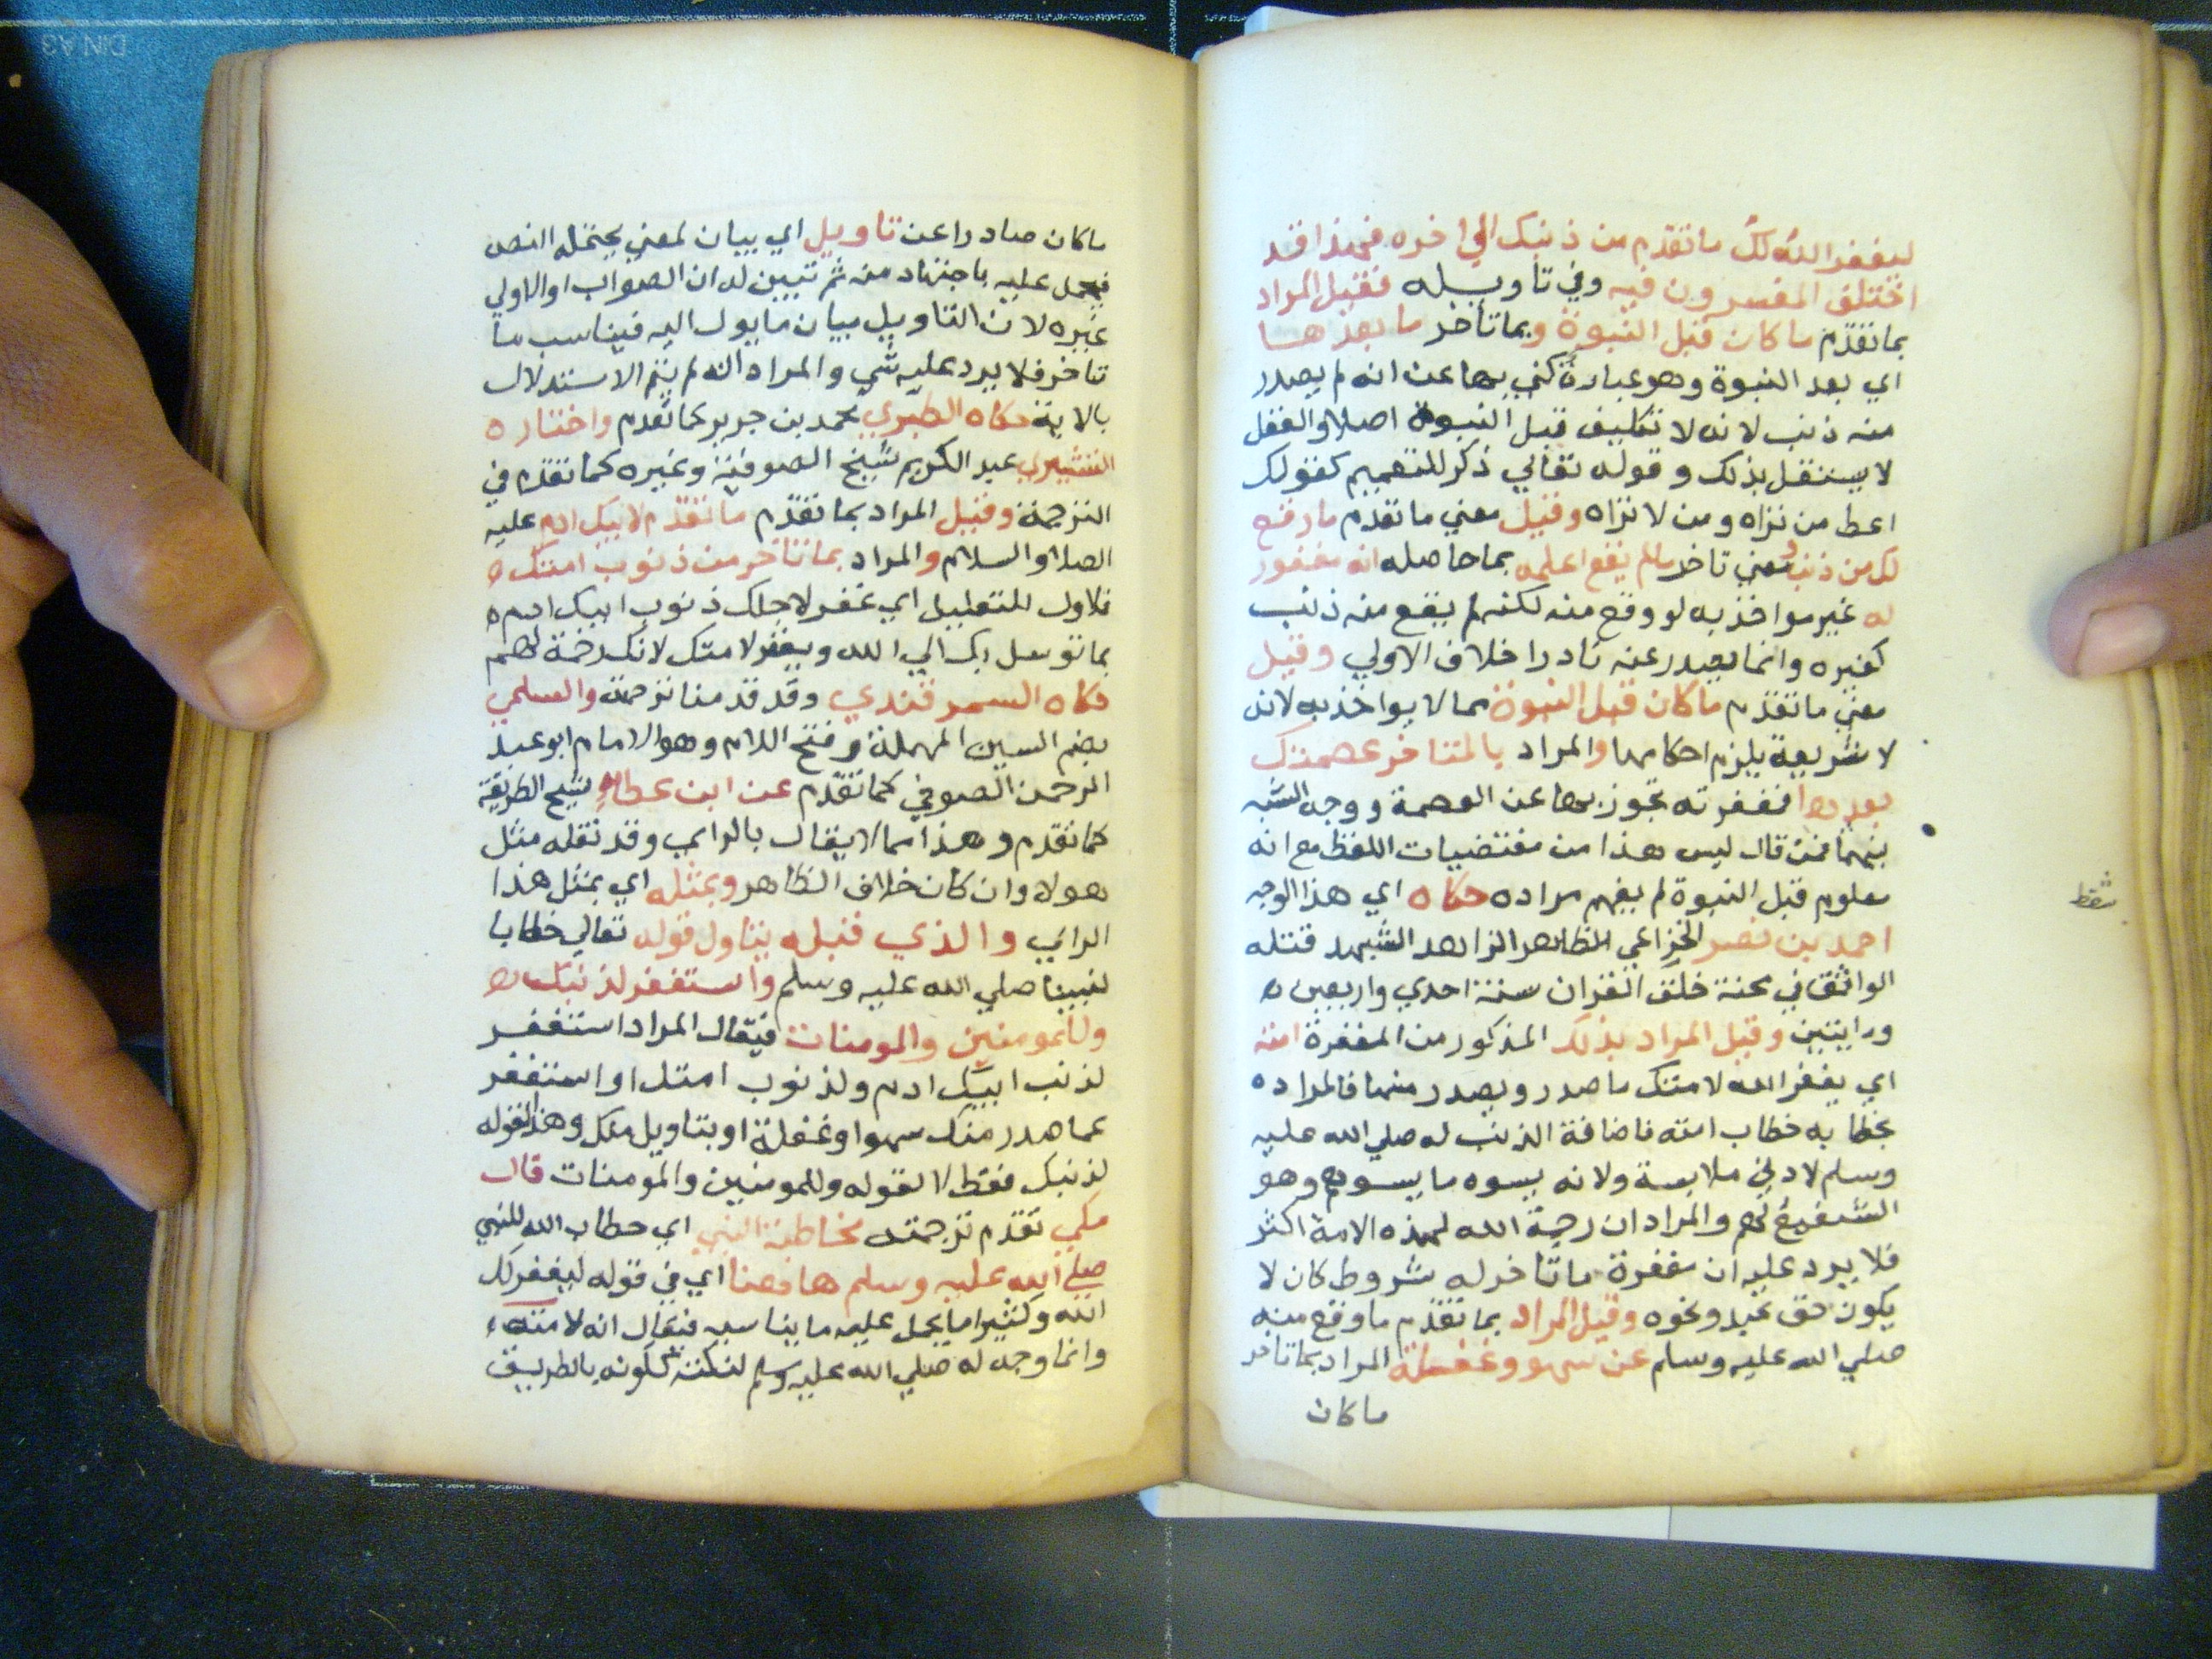 ليغفر الله لك ما تقدم من ذنبك الي اخره فهذا قد
اختلف المفسرون فيه وفي تاويله فقيل المراد
بما تقدم ما كان قبل النبوة وبما تأخر ما بعدها
اي بعد النبوة وهو عبارة كني بها عن انه لم يصدر
منه ذنب لانه لا تكليف قبل النبوة اصلا والعقل
لا يستقل بذلك وقوله تعالي ذكر للتعميم كقولك
اعط من تراه ومن لا تراه وقيل معني ما تقدم ما وقع
لك من ذنب ومعني تاخر مالم يقع اعلمه بما حاصله انه مغفور
له غير مواخذ به لو وقع منه لكنه لم يقع منه ذنب
كغيره وانما يصدر عنه نادرا خلاف الاولي وقيل
معني ما تقدم ما كان قبل النبوة مما لا يواخذ به لانه
لا شريعة يلزم احكامها والمراد بالمتاخر عصمتك
بعدها فمغفرته تجوز بها عن العصمة ووجه الشبه
بينهما فمن قال ليس هذا من مقتضيات اللفظ مع انه
معلوم قبل النبوة لم يفهم مراده حكاه اي هذا الوجه
احمد بن نصر الخزاعي الزاهد الشهيد قتله
الواثق في محنة خلق القران سنة احدي واربعين ه
ورايتين وقيل المراد بذلك المذكور من المغفرة امته
اي يغفر الله لامتك ما صدر ويصدر منها فالمراد ه
بخطابه خطاب امته فاضافة الذنب له صلي الله عليه
وسلم لادني ملابسة ولانه يسوه ما يسوهم وهو
الشفيع لهم والمراد ان رحمة الله لهذه الامة اكثر
فلا يرد عليه ان مغفرة ما تاخر له شروط كان لا
يكون حق عبد ونحوه وقيل المراد بما تقدم ما وقع منه
صلي الله عليه وسلم عن سهو وغفلة المراد بما تاخر
ما كان
ما كان صادرا عن تاويل اي بيان لمعني يحتمله النص
فيحمل عليه باجتهاد منه ثم تبين له ان الصواب او الاولي
غيره لان التاويل بيان ما يول اليه فيناسب ما
تاخر فلا يرد عليه شي والمراد انه لم يتم الاستدلال
بالاية حكاه الطبري محمد بن جرير كما تقدم واختاره
القشيري عبد الكريم شيخ الصوفية وغيره كما تقدم في
الترجمة وقيل المراد بما تقدم ما تقدم لابيك ادم عليه
الصلا والسلام والمراد بما تاخر من ذنوب امتك ه
فلاول للتعليل اي غفر لاجلك ذنوب ابيك ادم ه
بما توسل بك الي الله ويغفر لامتك لانك رحمة لهم
حكاه السمرقندي وقد قدمنا ترجمة والسلمي
بضم السين المهملة وفتح اللام وهو الامام ابو عبد
الرحمن الصوفي كما تقدم عن ابن عطاء شيخ الطريقة
كما تقدم وهذا مما لا يقال بالراي وقد نقله مثل
هولاء وان كان خلاف الظاهر وبمثله اي بمثل هذا
الراي والذي قبله يتاول قوله تعالي خطابا
لنبينا صلي الله عليه وسلم واستغفر لذنبك ه
وللمومنين والمومنات فيقال المراد استغفر
لذنب ابيك ادم ولذنوب امتك او استغفر
عما صدر منك سهوا وغفلة او بتاويل منك وهذا لقوله
لذنبك فقط لا لقوله وللمومنين والمومنات قال
مكي تقدم ترجمته مخاطبة النبي اي خطاب الله للنبي
صلي الله عليه وسلم هاهنا اي في قوله ليغفر لك
الله وكثيرا ما يحمل عليه ما يناسبه فيقال انه لامته
وانما وجه له صلي الله عليه وسلم لنكتة ككونه بالطريق